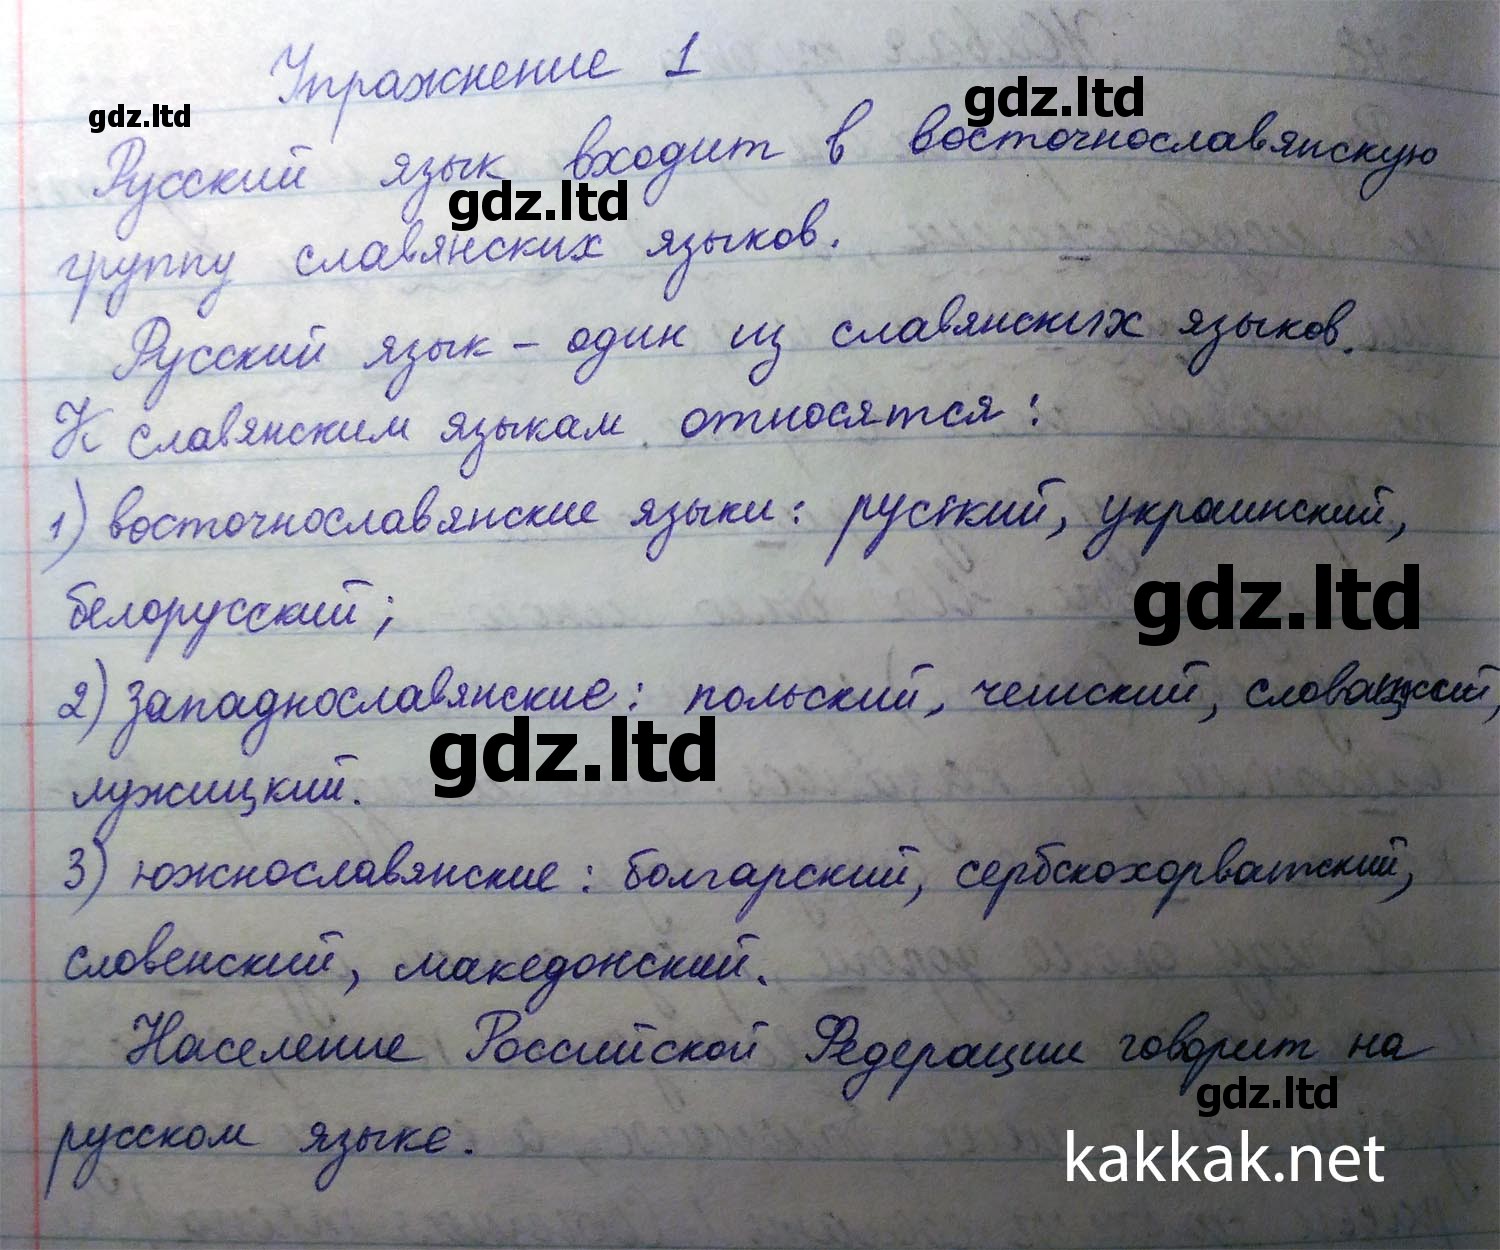 Упражнение 1
gdz.ltd
gdz.ltd
Русский язык входит в восточнославянскую
gdz.ltd
группу славянских языков.
Русский язык – один из славянских языков.
К славянским языкам относятся:
1) восточнославянские языки: русский, украинский,
gdz.ltd
белорусский;
2) западнославянские: польский, чешский, словацкий,
gdz.ltd
лужицкий.
3) южнославянские: болгарский, сербскохорватский,
словенский, македонский.
Население Российской Федерации говорит на
gdz.ltd
русском языке.
kakkak.net